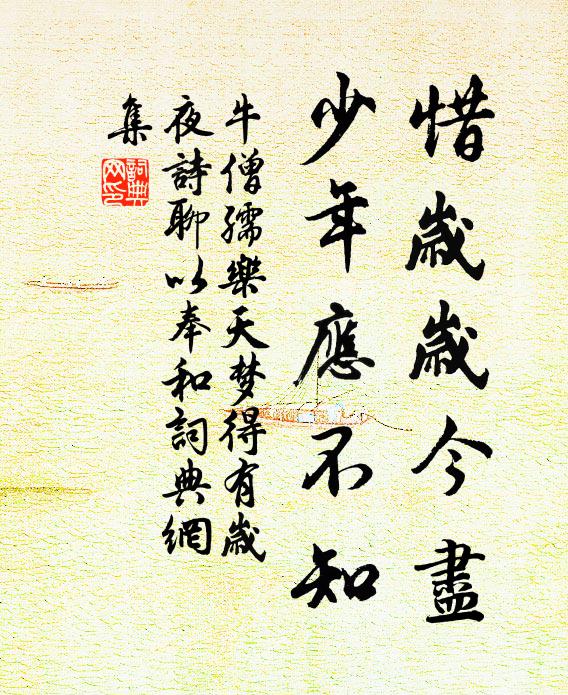 惜歲歲今盡
少年應不知
牛僧孺樂天夢得有歲
夜詩聊以奉和詞典網
集
詞典
网印